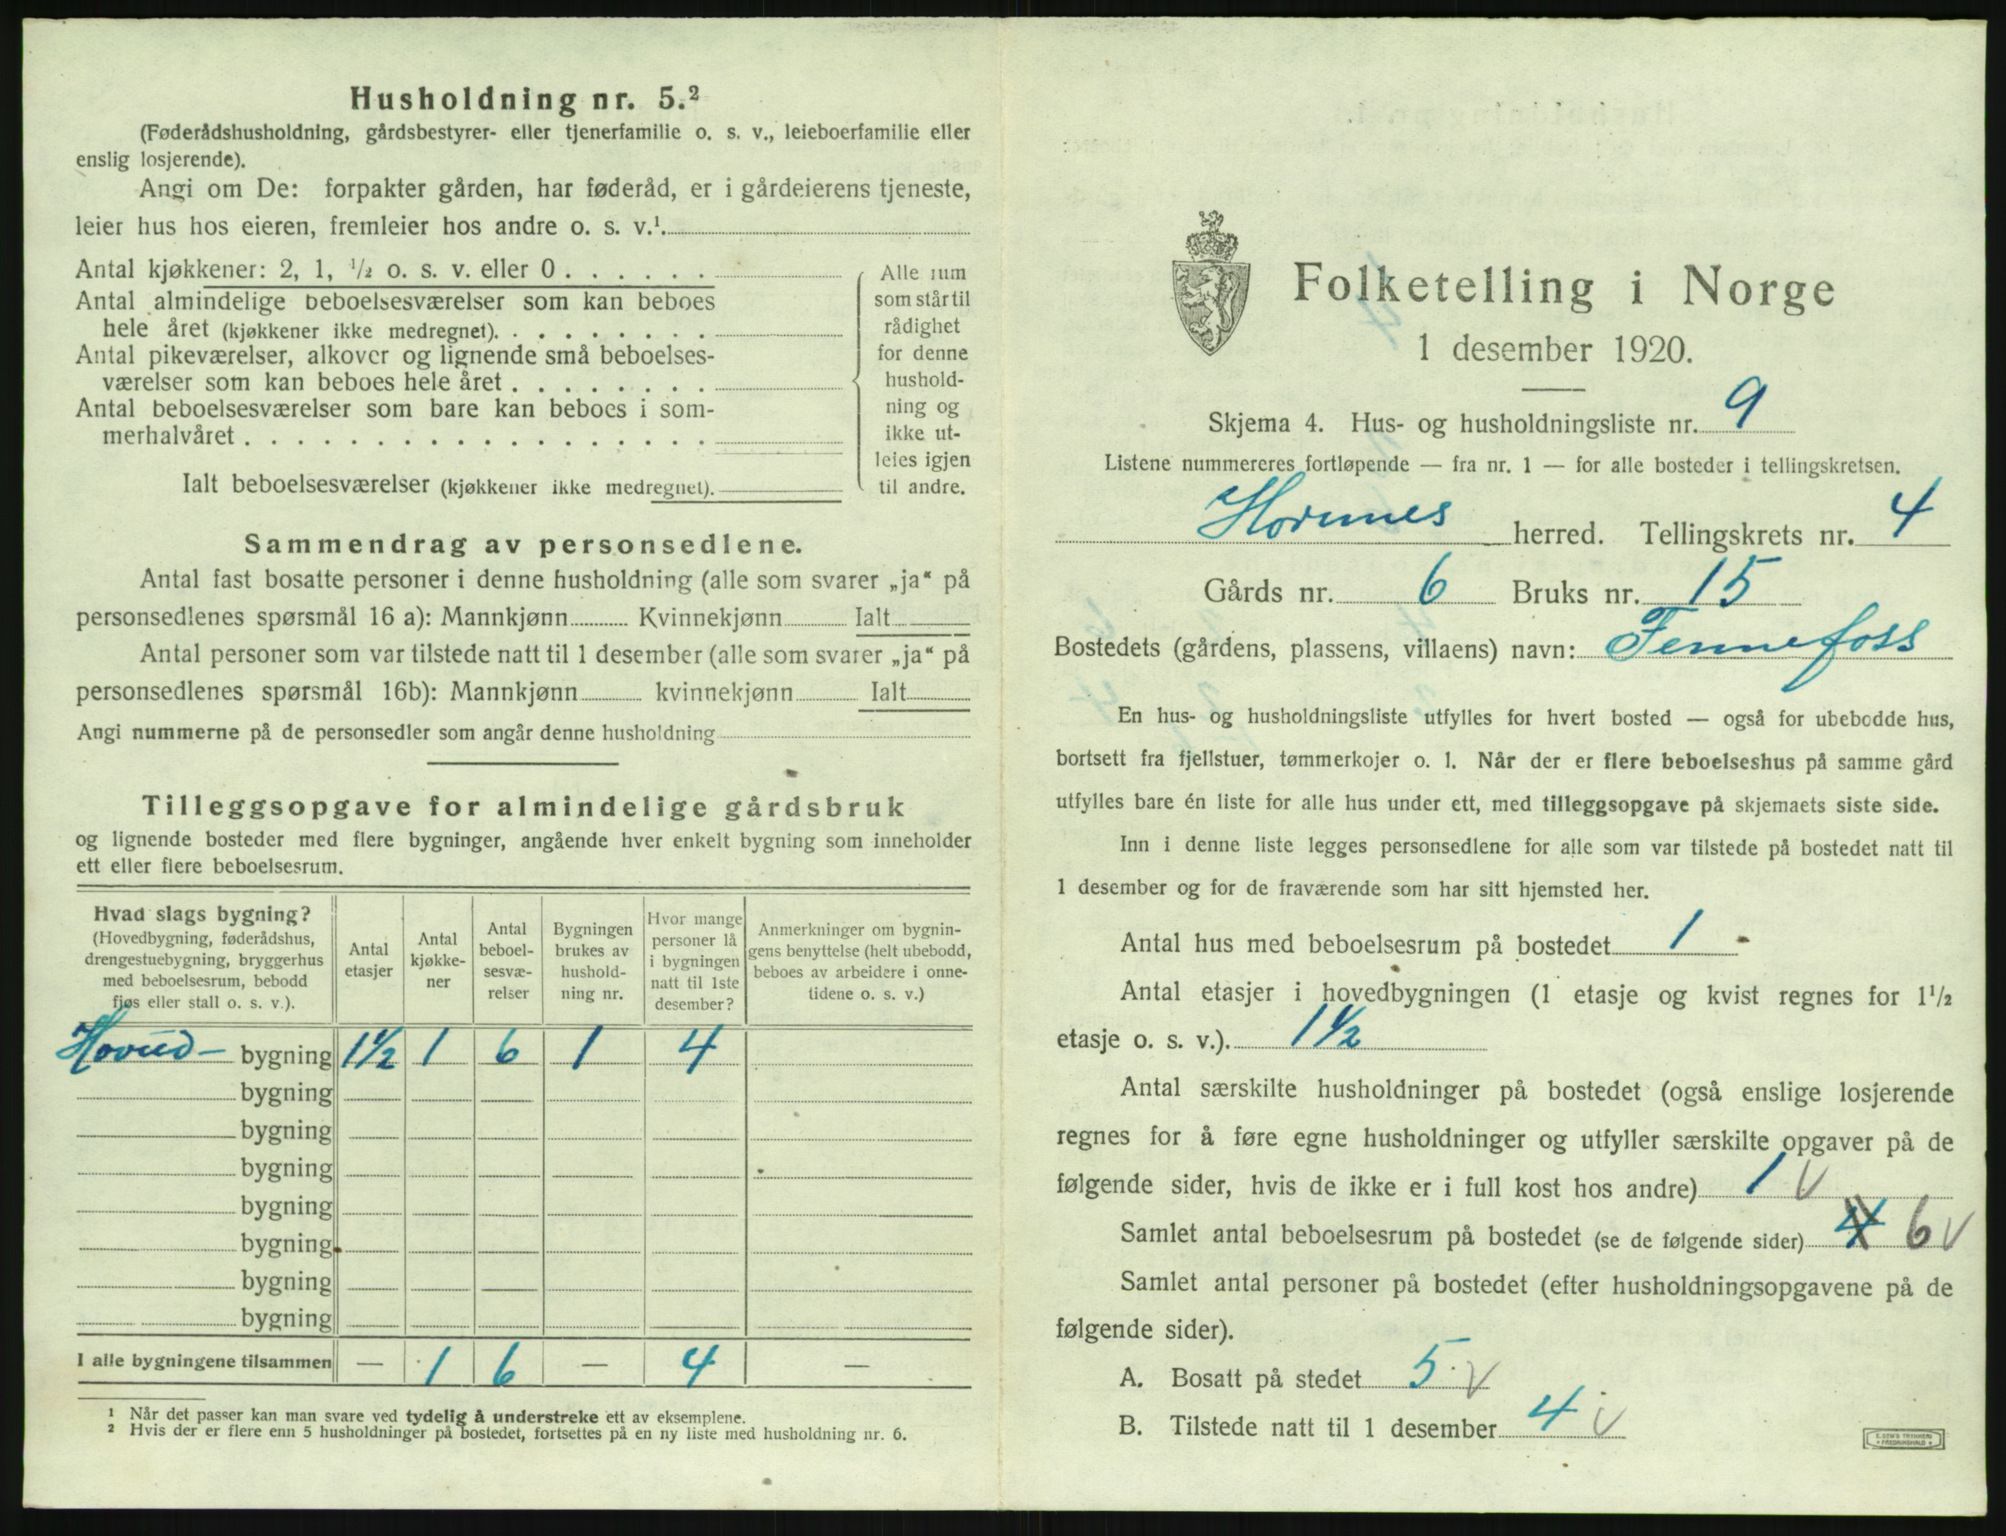 Husholdning nr. 5.²
(Føderådshusholdning, gårdsbestyrer- eller tjenerfamilie o. s. v., leieboerfamilie eller
enslig losjerende).
Angi om De: forpakter gården, har føderåd, er i gårdeierens tjeneste,
leier hus hos eieren, fremleier hos andre o. s. v.¹.
Antal kjøkkener: 2, 1, ½ o. s. v. eller 0 . . . . . .
Antal almindelige beboelsesværelser som kan beboes
hele året (kjøkkener ikke medregnet). . . . . . . . .
Antal pikeværelser, alkover og lignende små beboelses-
værelser som kan beboes hele året . . . . . . . .
Antal beboelsesværelser som bare kan beboes i som-
merhalvåret . . . . . . . . . . . . . . . . . .
Ialt beboelsesværelser (kjøkkener ikke medregnet).
Alle rum
som står til
rådighet
for denne
hushold-
ning og
ikke ut-
leies igjen
til andre.
Sammendrag av personsedlene.
Antal fast bosatte personer i denne husholdning (alle som svarer „ja“ på
personsedlenes spørsmål 16 a): Mannkjønn Kvinnekjønn Ialt
Antal personer som var tilstede natt til 1 desember (alle som svarer „ja“ på
personsedlenes spørsmål 16b): Mannkjønn kvinnekjønn Ialt
Angi nummerne på de personsedler som angår denne husholdning
Tilleggsopgave for almindelige gårdsbruk
og lignende bosteder med flere bygninger, angående hver enkelt bygning som inneholder
ett eller flere beboelsesrum.
Hvad slags bygning?
(Hovedbygning, føderådshus,
drengestuebygning, bryggerhus
med beboelsesrum, bebodd
fjøs eller stall o. s. v.).
Antal
etasjer
Antal
kjøkke-
ner
Antal
beboel-
sesvæ-
relser
Bygningen
brukes av
hushold-
ning nr.
Hvor mange
personer lå
i bygningen
natt til 1ste
desember?
Anmerkninger om bygnin-
gens benyttelse (helt ubebodd,
beboes av arbeidere i onne-
tidene o. s. v.)
Hovud- bygning 1½ 1 6 1 4
bygning
bygning
bygning
bygning
bygning
bygning
bygning
I alle bygningene tilsammen — 1 6 — 4 —
¹ Når det passer kan man svare ved tydelig å understreke ett av eksemplene.
² Hvis der er flere enn 5 husholdninger på bostedet, fortsettes på en ny liste med husholdning nr. 6.
Folketelling i Norge
1 desember 1920.
Skjema 4. Hus- og husholdningsliste nr. 9
Listene nummereres fortløpende — fra nr. 1 — for alle bosteder i tellingskretsen.
Hornnes herred. Tellingskrets nr. 4
Gårds nr. 6 Bruks nr. 15
Bostedets (gårdens, plassens, villaens) navn: Fennefoss
En hus- og husholdningsliste utfylles for hvert bosted — også for ubebodde hus,
bortsett fra fjellstuer, tømmerkojer o. l. Når der er flere beboelseshus på samme gård
utfylles bare én liste for alle hus under ett, med tilleggsopgave på skjemaets siste side.
Inn i denne liste legges personsedlene for alle som var tilstede på bostedet natt til
1 desember og for de fraværende som har sitt hjemsted her.
Antal hus med beboelsesrum på bostedet 1
Antal etasjer i hovedbygningen (1 etasje og kvist regnes for 1½
etasje o. s. v.). 1½
Antal særskilte husholdninger på bostedet (også enslige losjerende
regnes for å føre egne husholdninger og utfyller særskilte opgaver på de
følgende sider, hvis de ikke er i full kost hos andre) 1 v
Samlet antal beboelsesrum på bostedet (se de følgende sider) 4 6 v
Samlet antal personer på bostedet (efter husholdningsopgavene på de
følgende sider).
A. Bosatt på stedet 5 v
B. Tilstede natt til 1 desember 4 v